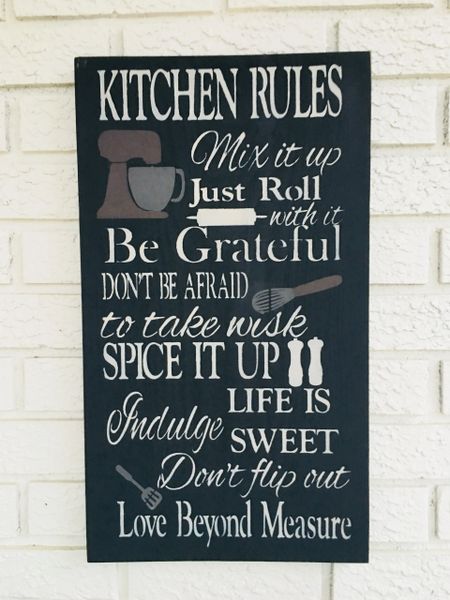 KITCHEN RULES
Mix it up
Just Roll
with it
Be Grateful
DON'T BE AFRAID
to take wisk
SPICE IT UP
LIFE IS
Indulge SWEET
Don't flip out
Love Beyond Measure